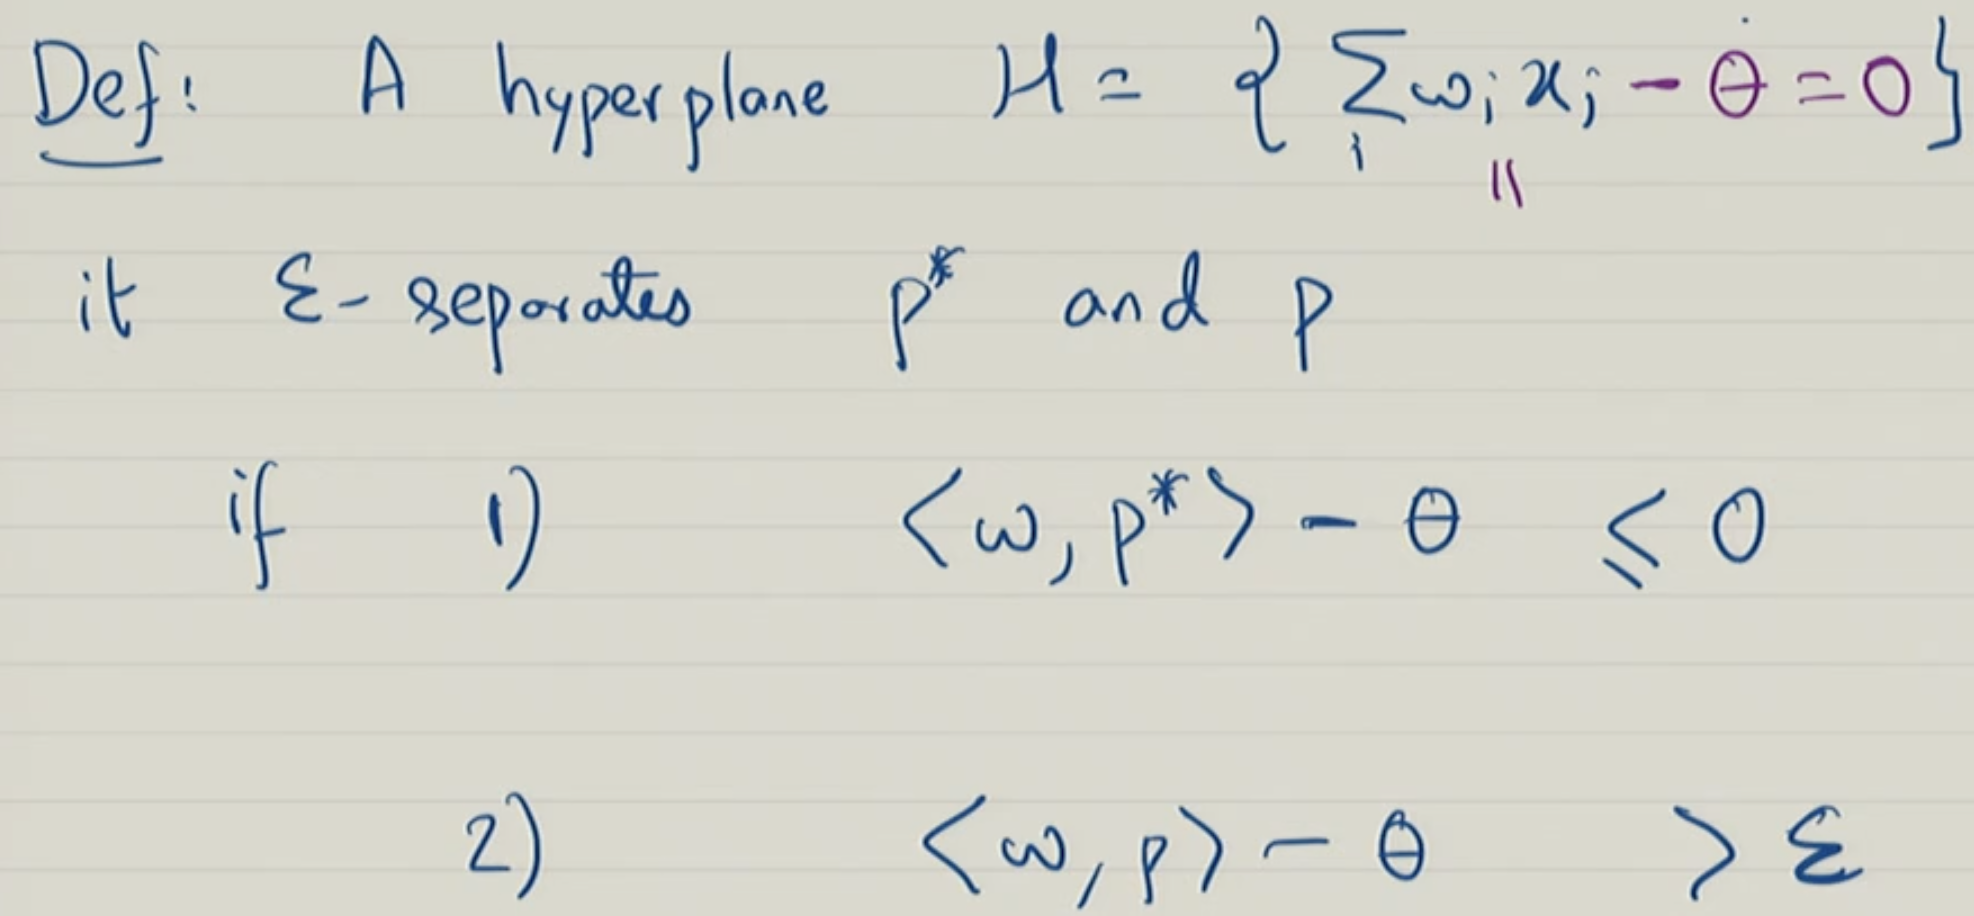 Def: A hyperplane H = { Σ_i ω_i x_i - θ = 0 }
||
it ε-separates p* and p
if 1) <ω, p*> - θ ≤ 0
2) <ω, p> - θ > ε